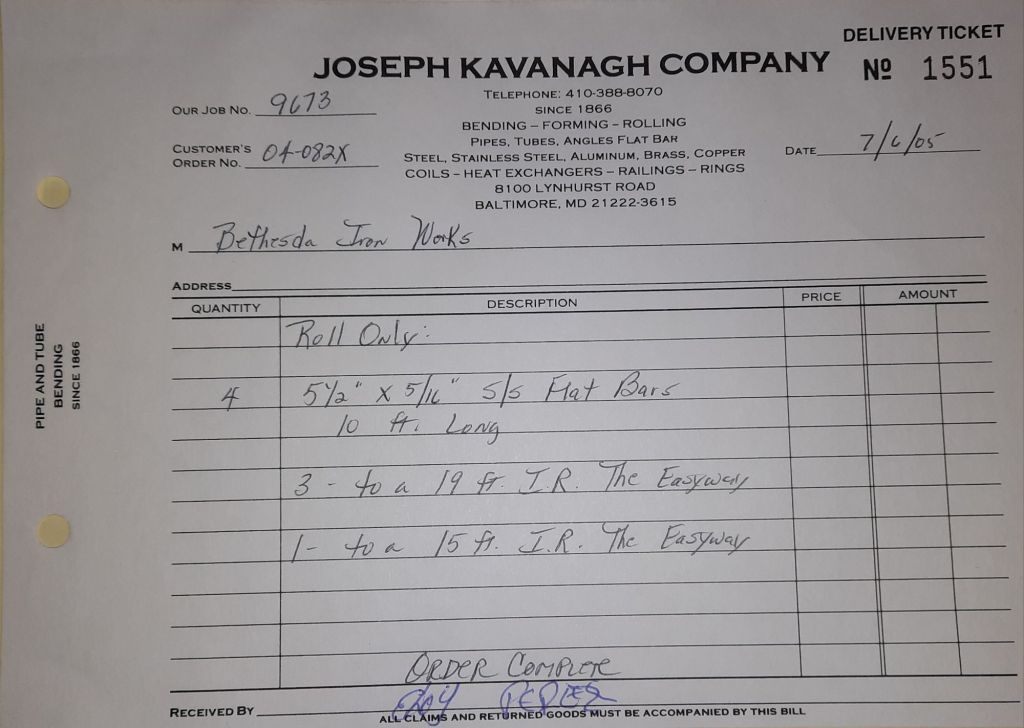 DELIVERY TICKET
JOSEPH KAVANAGH COMPANY
Nº 1551
TELEPHONE: 410-388-8070
SINCE 1866
BENDING – FORMING – ROLLING
PIPES, TUBES, ANGLES FLAT BAR
STEEL, STAINLESS STEEL, ALUMINUM, BRASS, COPPER
COILS – HEAT EXCHANGERS – RAILINGS – RINGS
8100 LYNHURST ROAD
BALTIMORE, MD 21222-3615
OUR JOB NO. 9673
CUSTOMER'S
ORDER NO. 04-082X
DATE 7/6/05
M Bethesda Iron Works
ADDRESS
QUANTITY DESCRIPTION PRICE AMOUNT
Roll Only:
4 5 1/2" X 5/16" S/S Flat Bars
10 ft. Long
3 - to a 19 ft. I.R. The Easyway
1 - to a 15 ft. I.R. The Easyway
ORDER COMPLETE
RECEIVED BY
ALL CLAIMS AND RETURNED GOODS MUST BE ACCOMPANIED BY THIS BILL
PIPE AND TUBE
BENDING
SINCE 1866